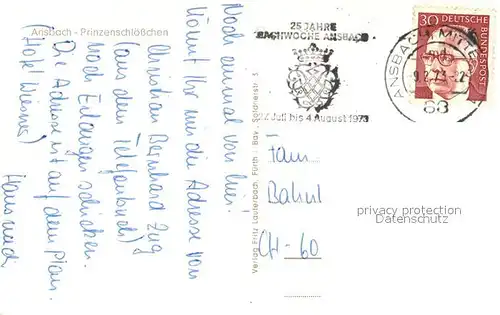 Ansbach - Prinzenschlößchen
Noch einmal von hier!
Könnt Ihr mir die Adresse von
Christian Bernhard Zug
(aus dem Telefonbuch)
nach Erlangen schicken.
Die Adresse ist auf dem Plan.
(Hotel
Verlag Fritz Lauterbach, Fürth i. Bay., Soldnerstr. 3
25 JAHRE
BACHWOCHE ANSBACH
27. Juli bis 4. August 1973
ANSBACH, MITTELFR
88
30 DEUTSCHE
BUNDESPOST
Fam
CH-60
privacy protection
Datenschutz